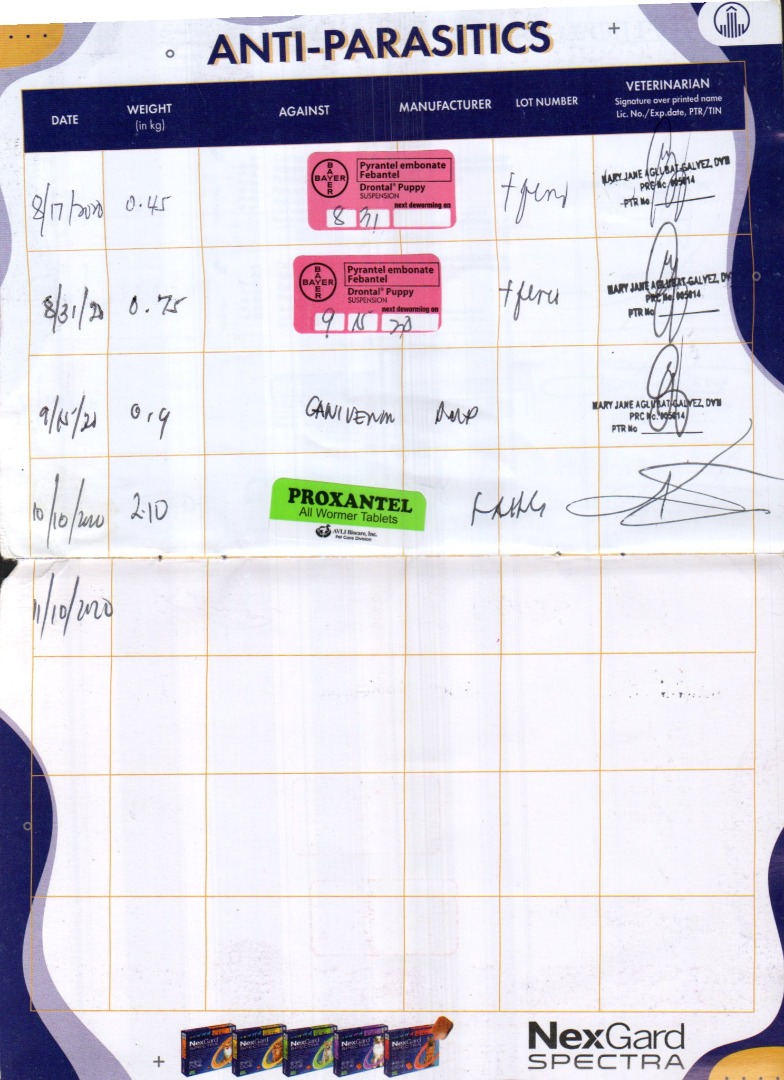 ANTI-PARASITICS
DATE
WEIGHT
(in kg)
AGAINST
MANUFACTURER
LOT NUMBER
VETERINARIAN
Signature over printed name
Lic. No./Exp.date, PTR/TIN
8/17/2020
0.45
BAYER
BAYER
Pyrantel embonate
Febantel
Drontal® Puppy
SUSPENSION
next deworming on
8 31
MARY JANE AGLUBAT-GALVEZ, DVM
PRC No. 005014
PTR No
8/31/20
0.75
BAYER
BAYER
Pyrantel embonate
Febantel
Drontal® Puppy
SUSPENSION
next deworming on
9 15 20
MARY JANE AGLUBAT-GALVEZ, DV
PRC No. 005014
PTR No
9/15/20
0.9
MARY JANE AGLUBAT-GALVEZ, DVM
PRC No. 005014
PTR No
10/10/2020
2.10
PROXANTEL
All Wormer Tablets
AVLI Biocare, Inc.
Pet Care Division
11/10/2020
NexGard
SPECTRA